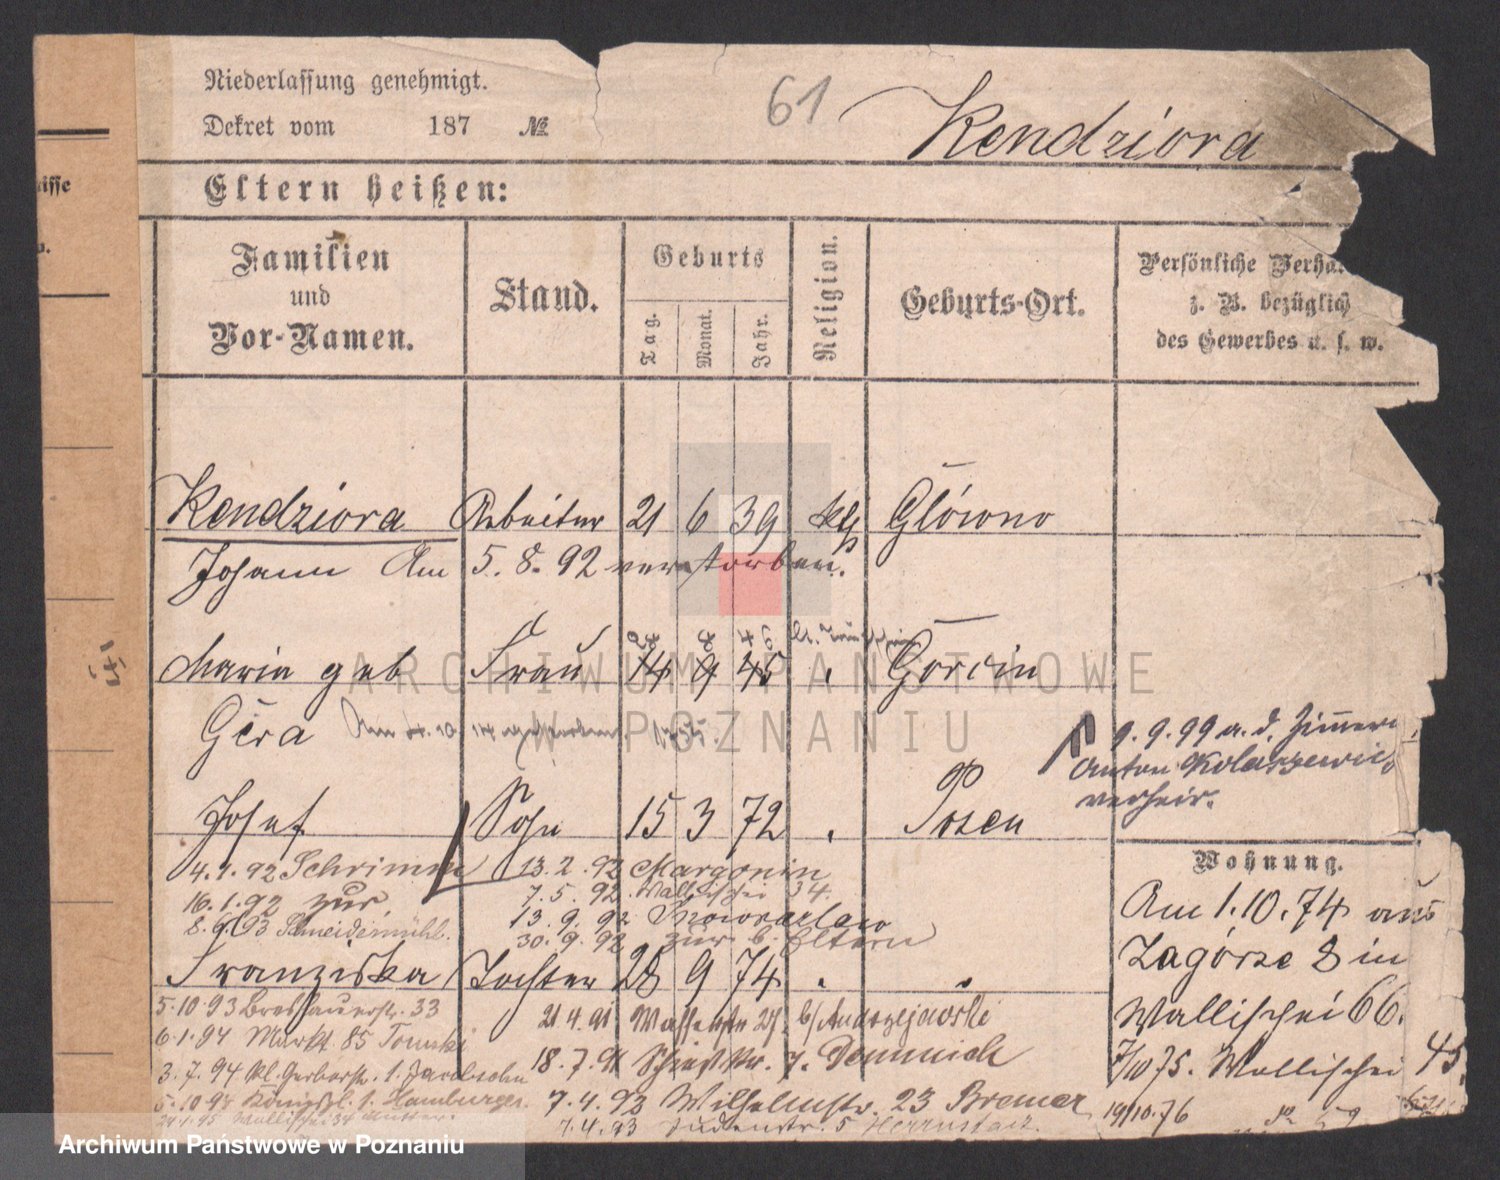 Niederlassung genehmigt.
Dekret vom 187 №
61
Kendziora
Eltern heißen:
Familien und Vor-Namen.
Stand.
Geburts
Tag.
Monat.
Jahr.
Religion.
Geburts-Ort.
Persönliche Verhä
z. B. bezüglich
des Gewerbes u. s. w.
Kendziora Arbeiter 21 6 39 kth Główno
Johann Am 5. 8. 92 verstorben.
Maria geb Frau 14 9 45 Gorcin
Góra Am
Josef Sohn 15 3 72 Posen
9. 9. 99 a. d. Zimmerm
Anton Kolaszewic
verheir.
4. 1. 92 Schrimm 13. 2. 92 Margonin
16. 1. 92 zur. 7. 5. 92 Wallischei 34.
8. 9. 93 Schneidemühl. 13. 9. 92 Inowrazlaw
30. 9. 92 zur b. Eltern
Franziska Tochter 28 9 74
5. 10 93 Breslauerstr. 33 21 4. 91 b/ Andrzejewski
6. 1. 94 Markt 85 Tomski 18. 7. 91 7. Demmich
3. 7. 94 kl. Gerberstr. 1. Jacobsohn
5. 10 94 Königspl. 1. Hamburger. 7. 4. 93 Wilhelmstr. 23 Bremer
Wallischei 34 Mutter. 7. 4. 93 5
Wohnung.
Am 1. 10. 74 aus
Zagórze 8 in
Wallischei 66.
7/10 75. Wallischei 45.
19/10. 76 do 59
ARCHIWUM PAŃSTWOWE
W POZNANIU
Archiwum Państwowe w Poznaniu